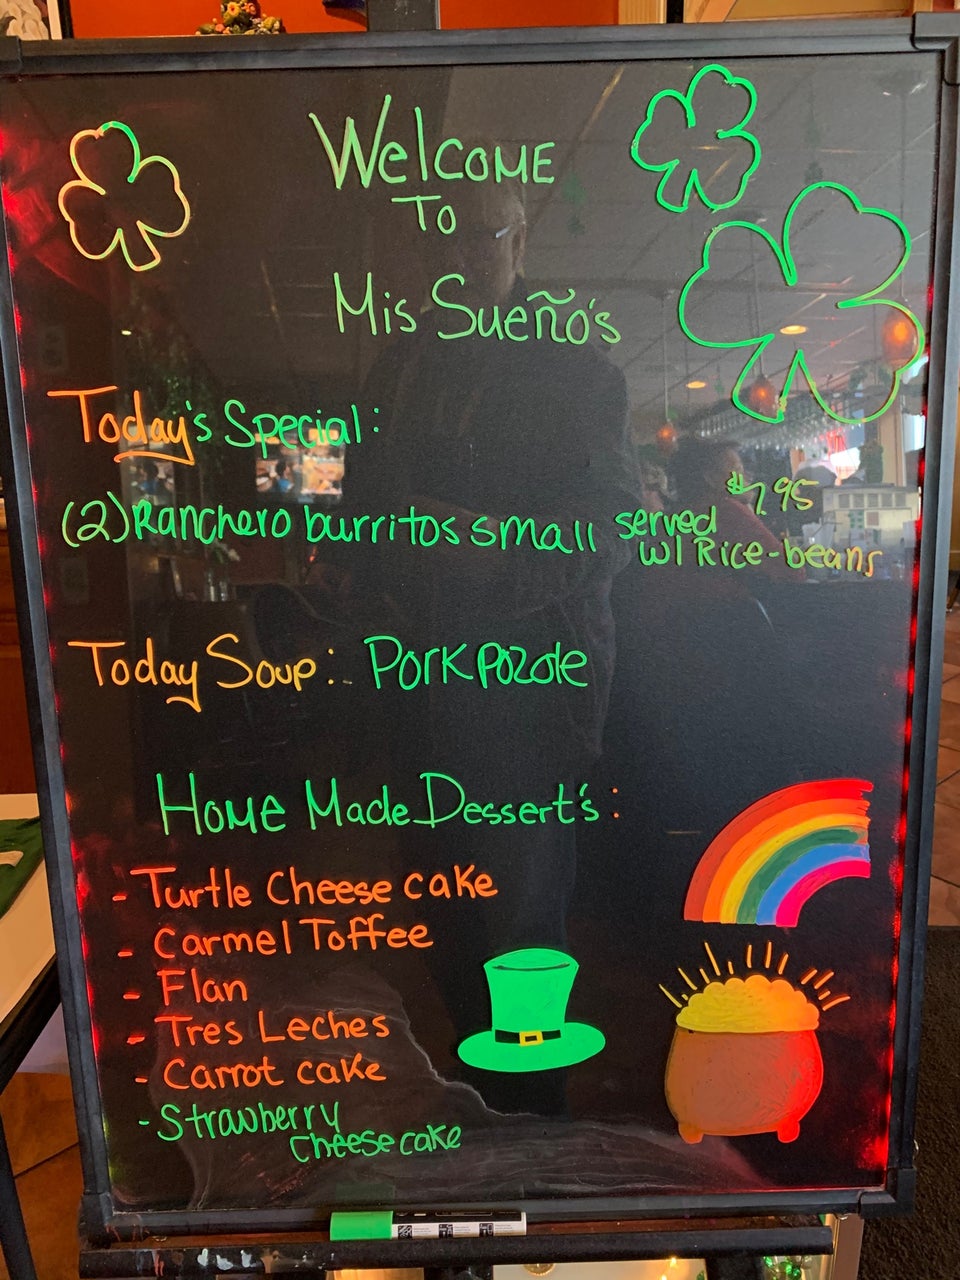 Welcome
To
Mis Sueño's
Today's Special:
$7.95
(2) Ranchero burritos small served
w/ Rice-beans
Today Soup: Pork Pozole
Home Made Dessert's:
- Turtle Cheese cake
- Carmel Toffee
- Flan
- Tres Leches
- Carrot cake
- Strawberry
Cheese cake